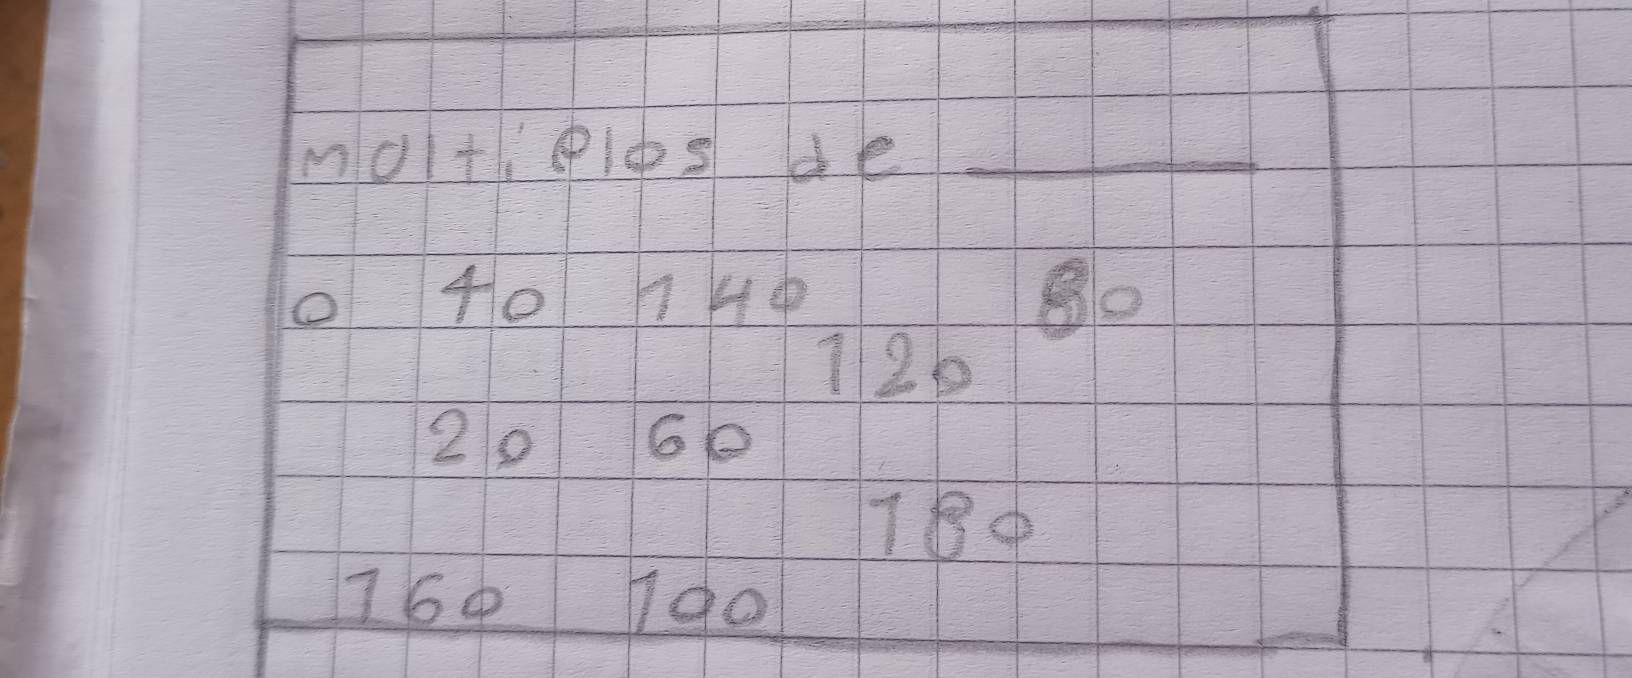 moltiplos de
0 40 140 80
120
20 60
180
160 100